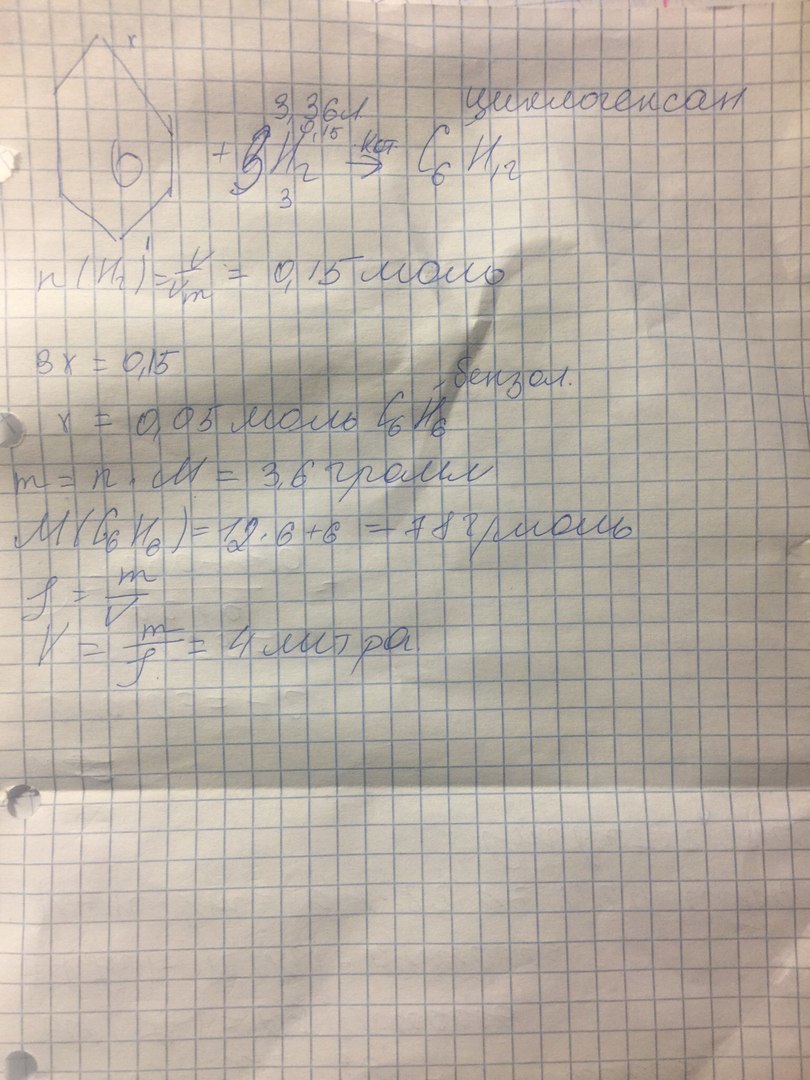 x
3,36л. циклогексан
6 + 3H₂ 0,15 кат → C₆H₁₂
3
1
n(H₂) = V/Vm = 0,15 моль
3x = 0,15
бензол.
x = 0,05 моль C₆H₆
m = n · M = 3,6 грамм
M(C₆H₆) = 12·6+6 = 78 г/моль
ρ = m/V
V = m/ρ = 4 литра.